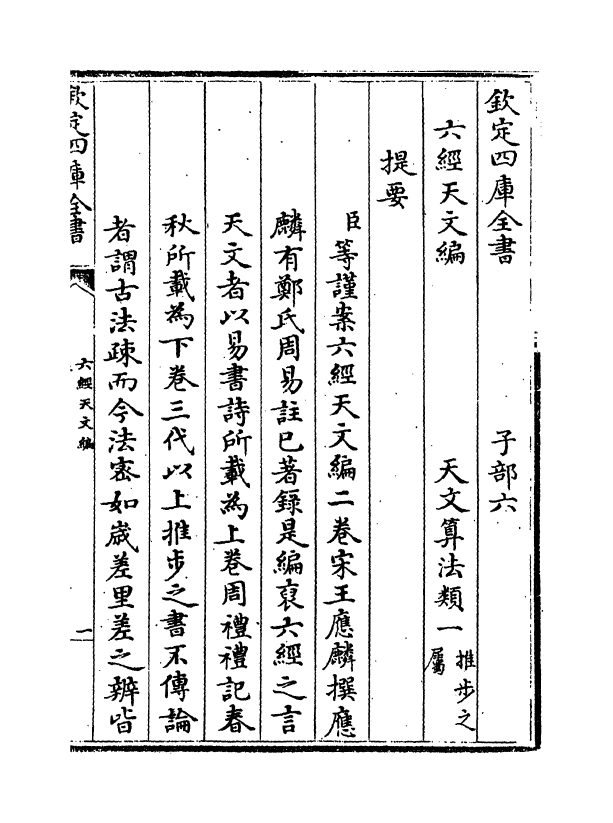 欽定四庫全書　子部六
六經天文編　天文算法類一推步之屬
提要
臣等謹案六經天文編二卷宋王應麟撰應
麟有鄭氏周易註已著錄是編裒六經之言
天文者以易書詩所載為上卷周禮禮記春
秋所載為下卷三代以上推步之書不傳論
者謂古法疎而今法宻如嵗差里差之辨皆
欽定四庫全書
六經天文編
一